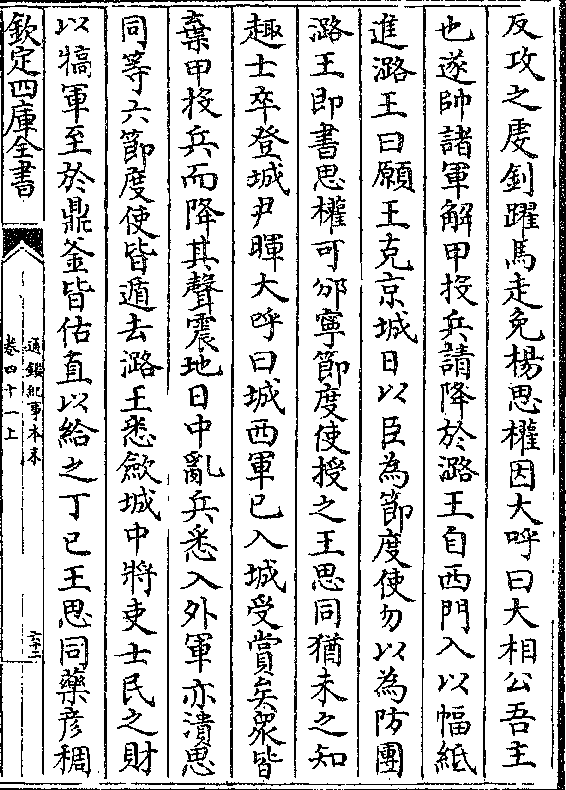 反攻之虔釗躍馬走免楊思權因大呼曰大相公吾主
也遂帥諸軍解甲投兵請降於潞王自西門入以幅紙
進潞王曰願王克京城日以臣為節度使勿以為防團
潞王即書思權可邠寧節度使授之王思同猶未之知
趣士卒登城尹暉大呼曰城西軍已入城受賞矣衆皆
棄甲投兵而降其聲震地日中亂兵悉入外軍亦潰思
同等六節度使皆遁去潞王悉斂城中將吏士民之財
以犒軍至於鼎釜皆估直以給之丁巳王思同藥彥稠
欽定四庫全書
通鑑紀事本末
卷四十一上
六十二